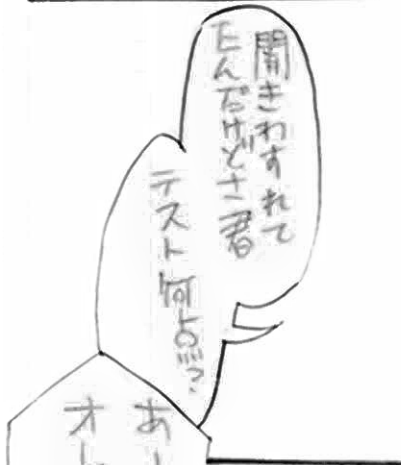 聞きわすれて
たんだけどさ君
テスト何点?
あー
オレ